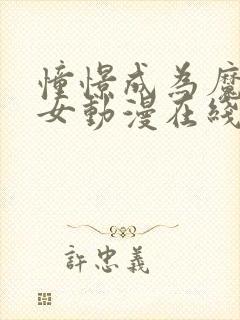 憧憬成为魔
女動漫在綫
許忠義